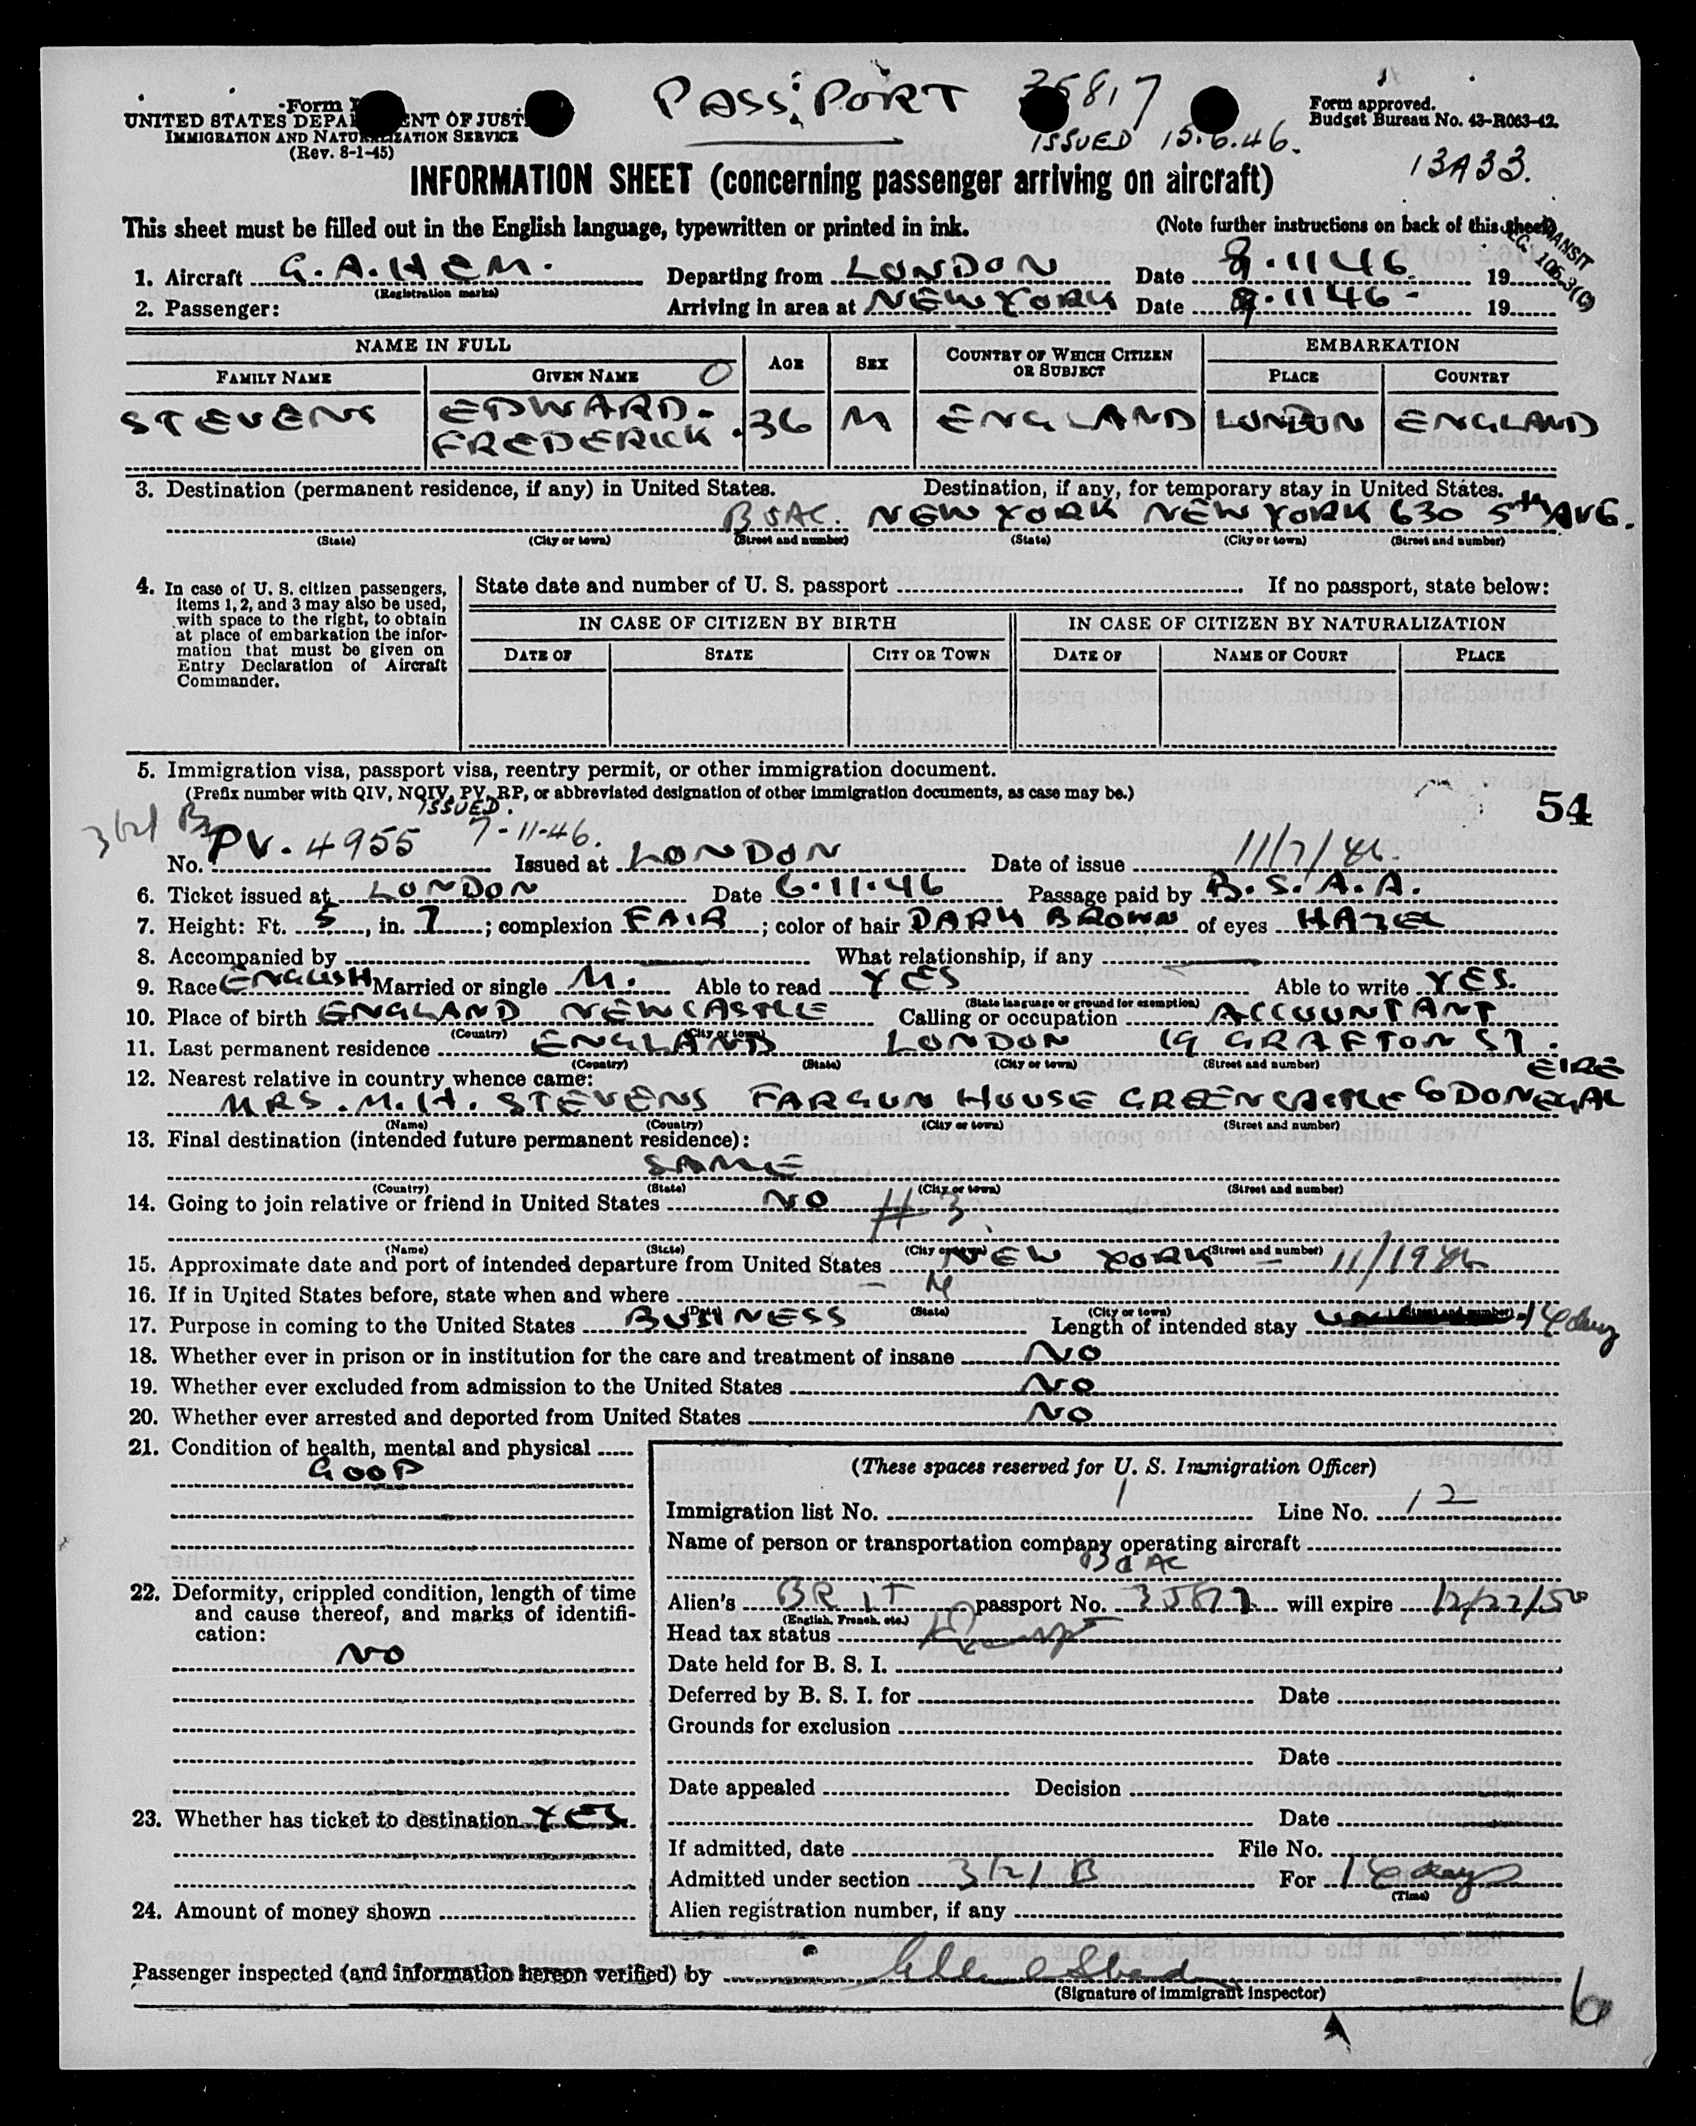 PASSPORT
ISSUED 15.6.46.
UNITED STATES
IMMIGRATION AND NATURALIZATION SERVICE
(Rev. 8-1-45)
Form approved.
Budget Bureau No. 43-R063-42.
13A33.
INFORMATION SHEET (concerning passenger arriving on aircraft)
This sheet must be filled out in the English language, typewritten or printed in ink. (Note further instructions on back of this sheet)
1. Aircraft G.A.HEM. Departing from LONDON Date 8.11 46. 19
(Registration marks)
2. Passenger: Arriving in area at NEW YORK Date 9.11 46. 19
NAME IN FULL AGE SEX COUNTRY OF WHICH CITIZEN OR SUBJECT EMBARKATION
FAMILY NAME GIVEN NAME PLACE COUNTRY
STEVENS EDWARD. FREDERICK. 36 M ENGLAND LONDON ENGLAND
3. Destination (permanent residence, if any) in United States. Destination, if any, for temporary stay in United States.
NEW YORK NEW YORK 630 5th AVE.
(State) (City or town) (Street and number) (State) (City or town) (Street and number)
4. In case of U. S. citizen passengers, items 1, 2, and 3 may also be used, with space to the right, to obtain at place of embarkation the information that must be given on Entry Declaration of Aircraft Commander.
State date and number of U. S. passport If no passport, state below:
IN CASE OF CITIZEN BY BIRTH IN CASE OF CITIZEN BY NATURALIZATION
DATE OF STATE CITY OR TOWN DATE OF NAME OF COURT PLACE
5. Immigration visa, passport visa, reentry permit, or other immigration document.
(Prefix number with QIV, NQIV, PV, RP, or abbreviated designation of other immigration documents, as case may be.)
54
ISSUED.
7-11-46.
No. PV. 4955 Issued at LONDON Date of issue 11/7/46.
6. Ticket issued at LONDON Date 6.11.46 Passage paid by B.S.A.A.
7. Height: Ft. 5, in. 7; complexion FAIR; color of hair DARK BROWN of eyes HAZEL
8. Accompanied by What relationship, if any
9. Race ENGLISH Married or single M. Able to read YES Able to write YES.
(State language or ground for exemption)
10. Place of birth ENGLAND NEWCASTLE Calling or occupation ACCOUNTANT
(Country) (City or town)
11. Last permanent residence ENGLAND LONDON 19 GRAFTON ST.
(Country) (State) (City or town) (Street and number)
12. Nearest relative in country whence came: EIRE
MRS. M.H. STEVENS FARGUN HOUSE GREENCASTLE CO DONEGAL
(Name) (Country) (City or town) (Street and number)
13. Final destination (intended future permanent residence):
SAME
(Country) (State) (City or town) (Street and number)
14. Going to join relative or friend in United States NO # 3
(Name) (State) (City or town) (Street and number)
15. Approximate date and port of intended departure from United States NEW YORK - 11/1946
16. If in United States before, state when and where
(Date) (State) (City or town) (Street and number)
17. Purpose in coming to the United States BUSINESS Length of intended stay 14 days
18. Whether ever in prison or in institution for the care and treatment of insane NO
19. Whether ever excluded from admission to the United States NO
20. Whether ever arrested and deported from United States NO
21. Condition of health, mental and physical
GOOD
22. Deformity, crippled condition, length of time and cause thereof, and marks of identification:
NO
23. Whether has ticket to destination YES.
24. Amount of money shown
(These spaces reserved for U. S. Immigration Officer)
Immigration list No. 1 Line No. 12
Name of person or transportation company operating aircraft
BOAC
Alien's BRIT passport No. will expire 12/22/50
(English, French, etc.)
Head tax status
Date held for B. S. I.
Deferred by B. S. I. for Date
Grounds for exclusion
Date
Date appealed Decision
Date
If admitted, date File No.
Admitted under section 3(2)B For 14 days
(Time)
Alien registration number, if any
Passenger inspected (and information hereon verified) by
(Signature of immigrant inspector)
6